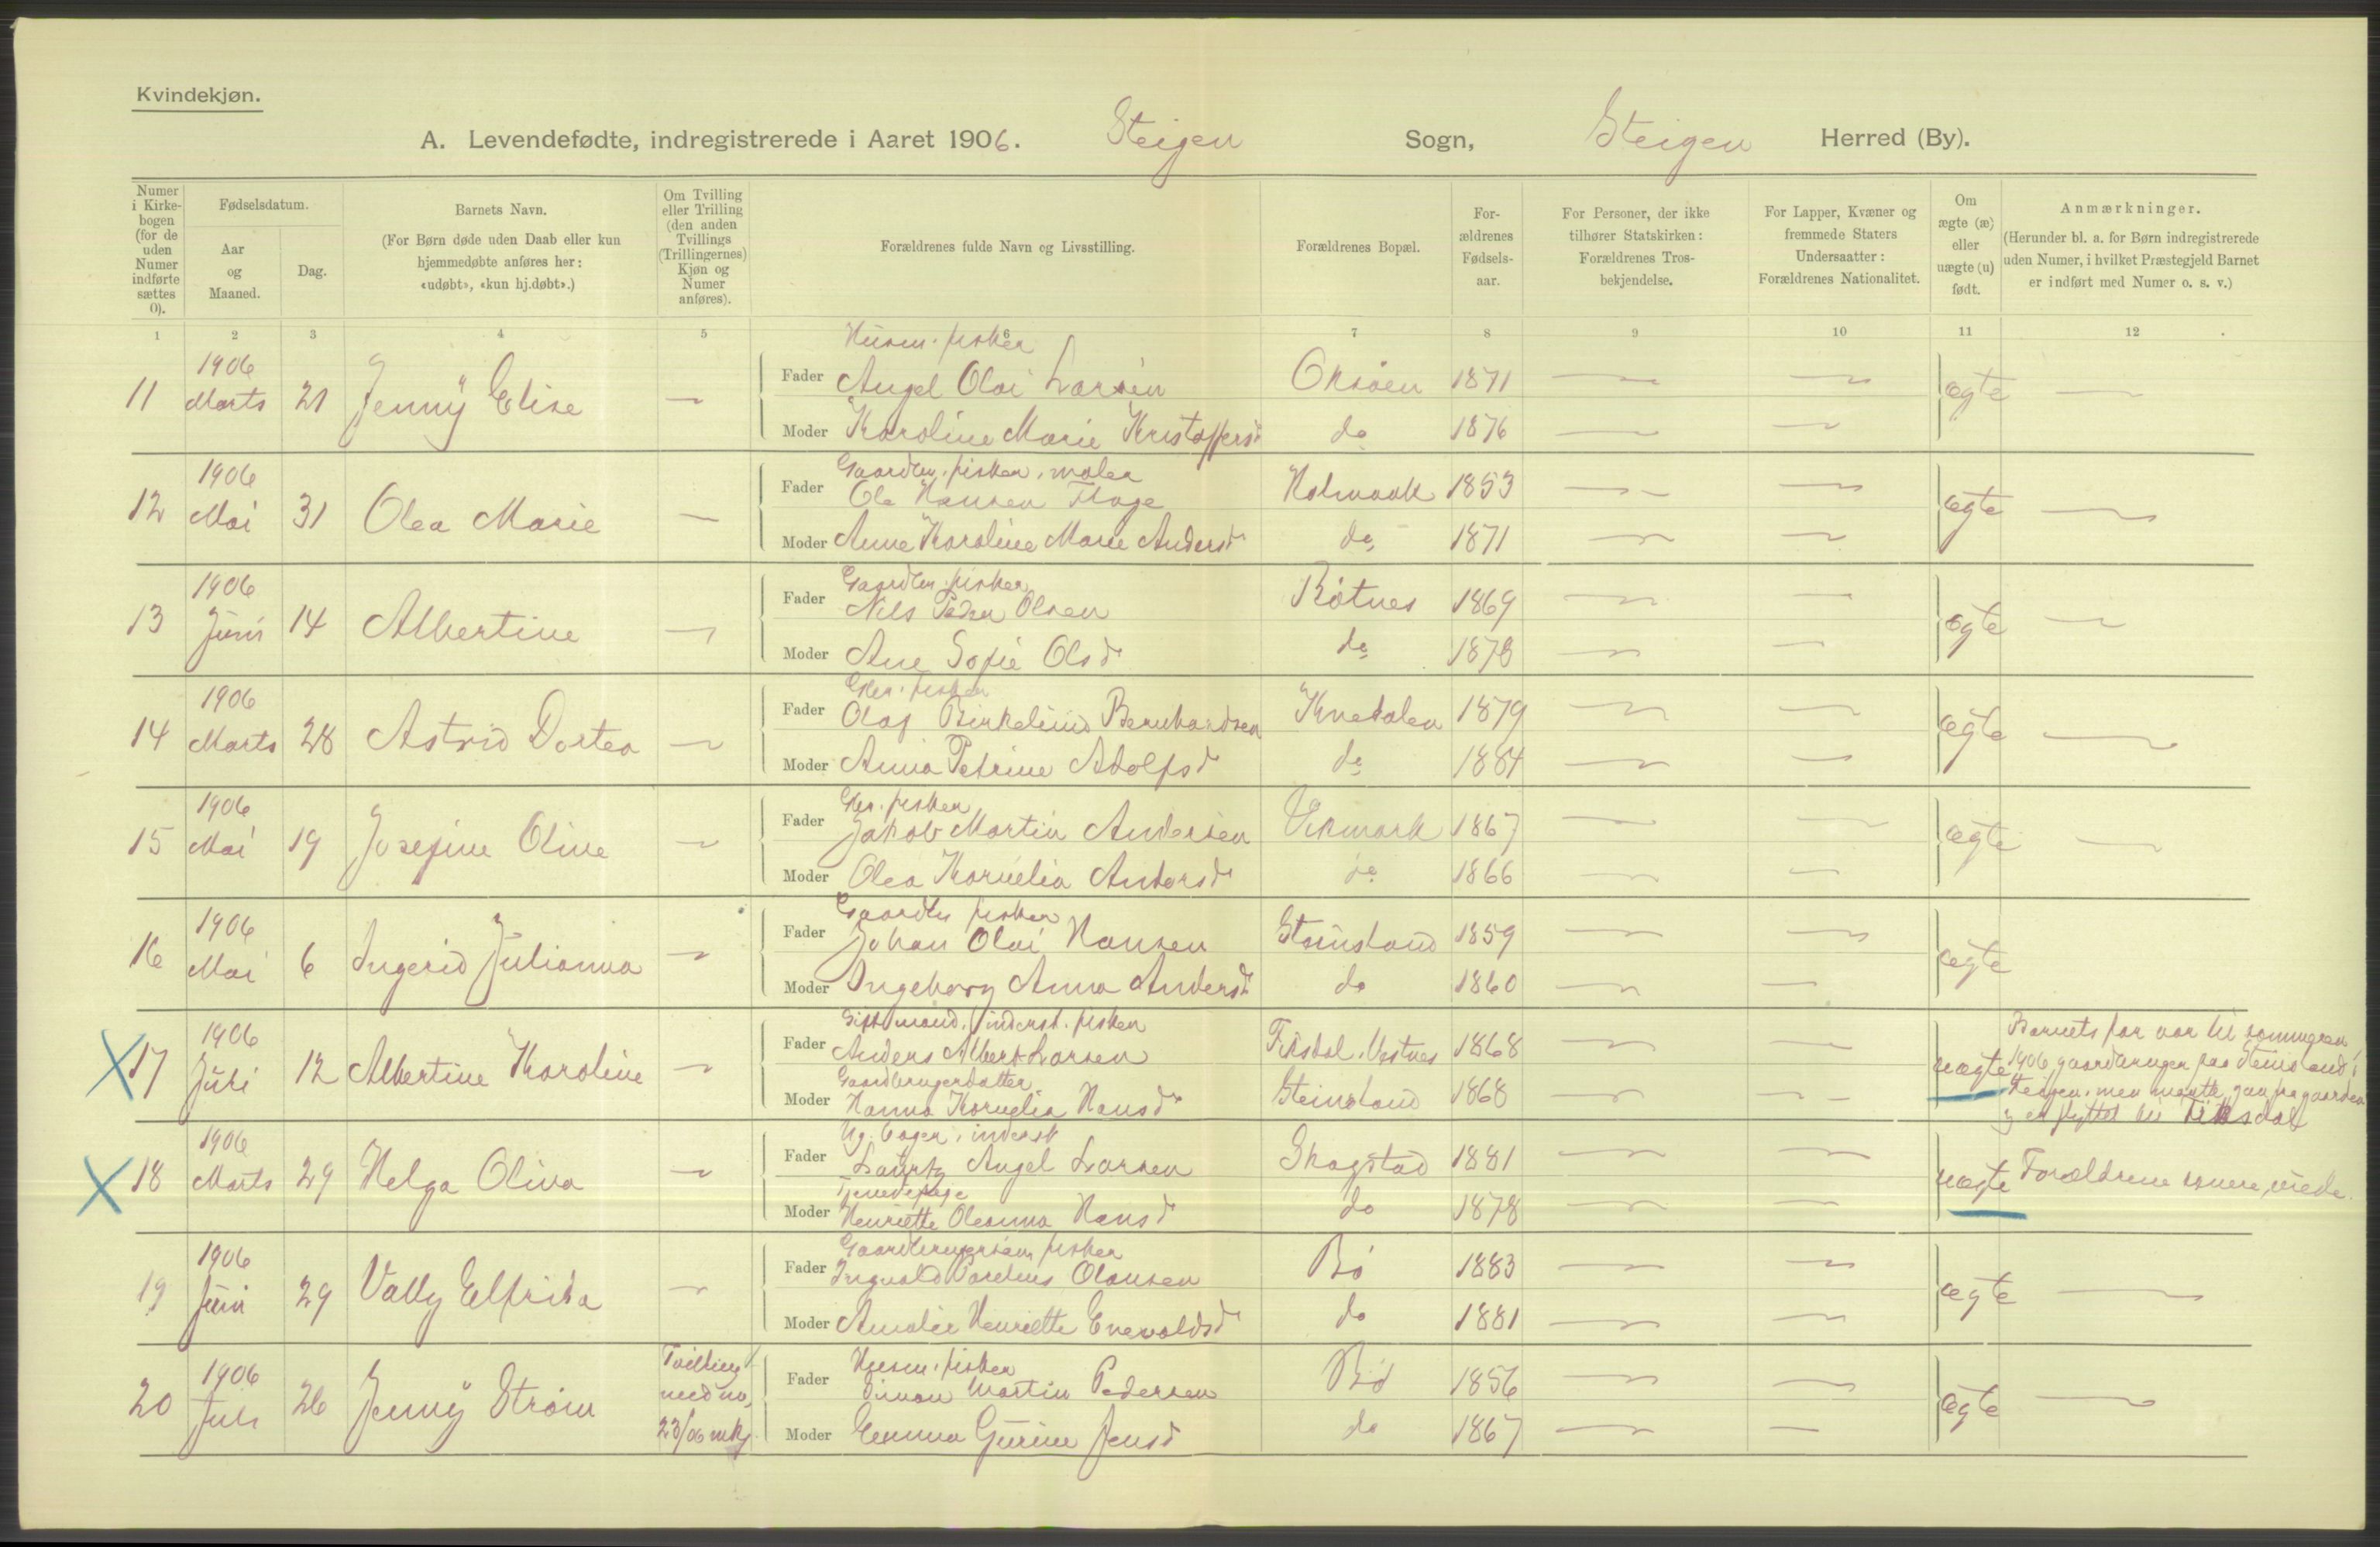 Kvindekjøn.
A. Levendefødte, indregistrerede i Aaret 1906. Steigen Sogn, Steigen Herred (By).
Numer i Kirkebogen (for de uden Numer indførte sættes 0).
Fødselsdatum.
Aar og Maaned.
Dag.
Barnets Navn.
(For Børn døde uden Daab eller kun hjemmedøbte anføres her: «udøbt», «kun hj.døbt».)
Om Tvilling eller Trilling (den anden Tvillings (Trillingernes) Kjøn og Numer anføres).
Forældrenes fulde Navn og Livsstilling.
Forældrenes Bopæl.
Forældrenes Fødselsaar.
For Personer, der ikke tilhører Statskirken: Forældrenes Trosbekjendelse.
For Lapper, Kvæner og fremmede Staters Undersaatter: Forældrenes Nationalitet.
Om ægte (æ) eller uægte (u) født.
Anmærkninger.
(Herunder bl. a. for Børn indregistrerede uden Numer, i hvilket Præstegjeld Barnet er indført med Numer o. s. v.)
1 2 3 4 5 6 7 8 9 10 11 12
Husm. fisker
11 1906 Marts 21 Jenny Elise — Fader Angel Olai Larsen Oksøen 1871 — — ægte —
Moder Karoline Marie Kristoffersd. do 1876 — —
Gaardbr. fisker, maler
12 1906 Mai 31 Olea Marie — Fader Ole Hansen Flage Holmaak 1853 — — ægte —
Moder Anne Karoline Marie Andersd. do 1871 — —
Gaardbr. fisker
13 1906 Juni 14 Albertine — Fader Nils Peder Olsen Røtnes 1869 — — ægte —
Moder Ane Sofie Olsd. do 1878 — —
Gbr. fisker
14 1906 Marts 28 Astrid Dortea — Fader Olaf Birkelund Bernhardsen 1879 — — ægte —
Moder Anna Petrine Adolfsd. do 1884 — —
Gbr. fisker
15 1906 Mai 19 Josefine Oline — Fader Jakob Martin Andersen 1867 — — ægte —
Moder Olea Kornelia Andersd. do 1866 — —
Gaardbr fisker
16 1906 Mai 6 Ingerid Julianna — Fader Johan Olai Hansen Steinsland 1859 — — ægte
Moder Ingeborg Anna Andersd. do 1860 — —
Gift mand, inderst. fisker
17 1906 Juli 12 Albertine Karoline — Fader Anders Albert Larsen Fiksdal, Vestnes 1868 — — uægte
Gaardbrugerdatter
Moder Hanna Kornelia Hansd. Steinsland 1868 — —
Barnets far var til sommeren
1906 gaardbruger paa Steinsland i
Steigen, men maatte gaa fra gaarden
og er flyttet til Fiksdal
Ug. inderst
18 1906 Marts 29 Helga Oliva — Fader Lauritz Angel Larsen Skagstad 1881 — — uægte Forældrene senere viede.
Tjenestepige
Moder Henriette Oleanna Hansd. do 1878 — —
Gaardbrugersøn, fisker
19 1906 Juni 29 Vally Elfrida — Fader Ingvald Olausen Bø 1883 — — ægte —
Moder Amalie Henriette Enevoldsd. do 1881 — —
Husm. fisker
20 1906 Juli 26 Jenny Strøm Tvilling med no. 23/06 mkj. Fader Simon Martin Pedersen Bø 1856 — — ægte —
Moder Emma Gurine Jensd. do 1867 — —